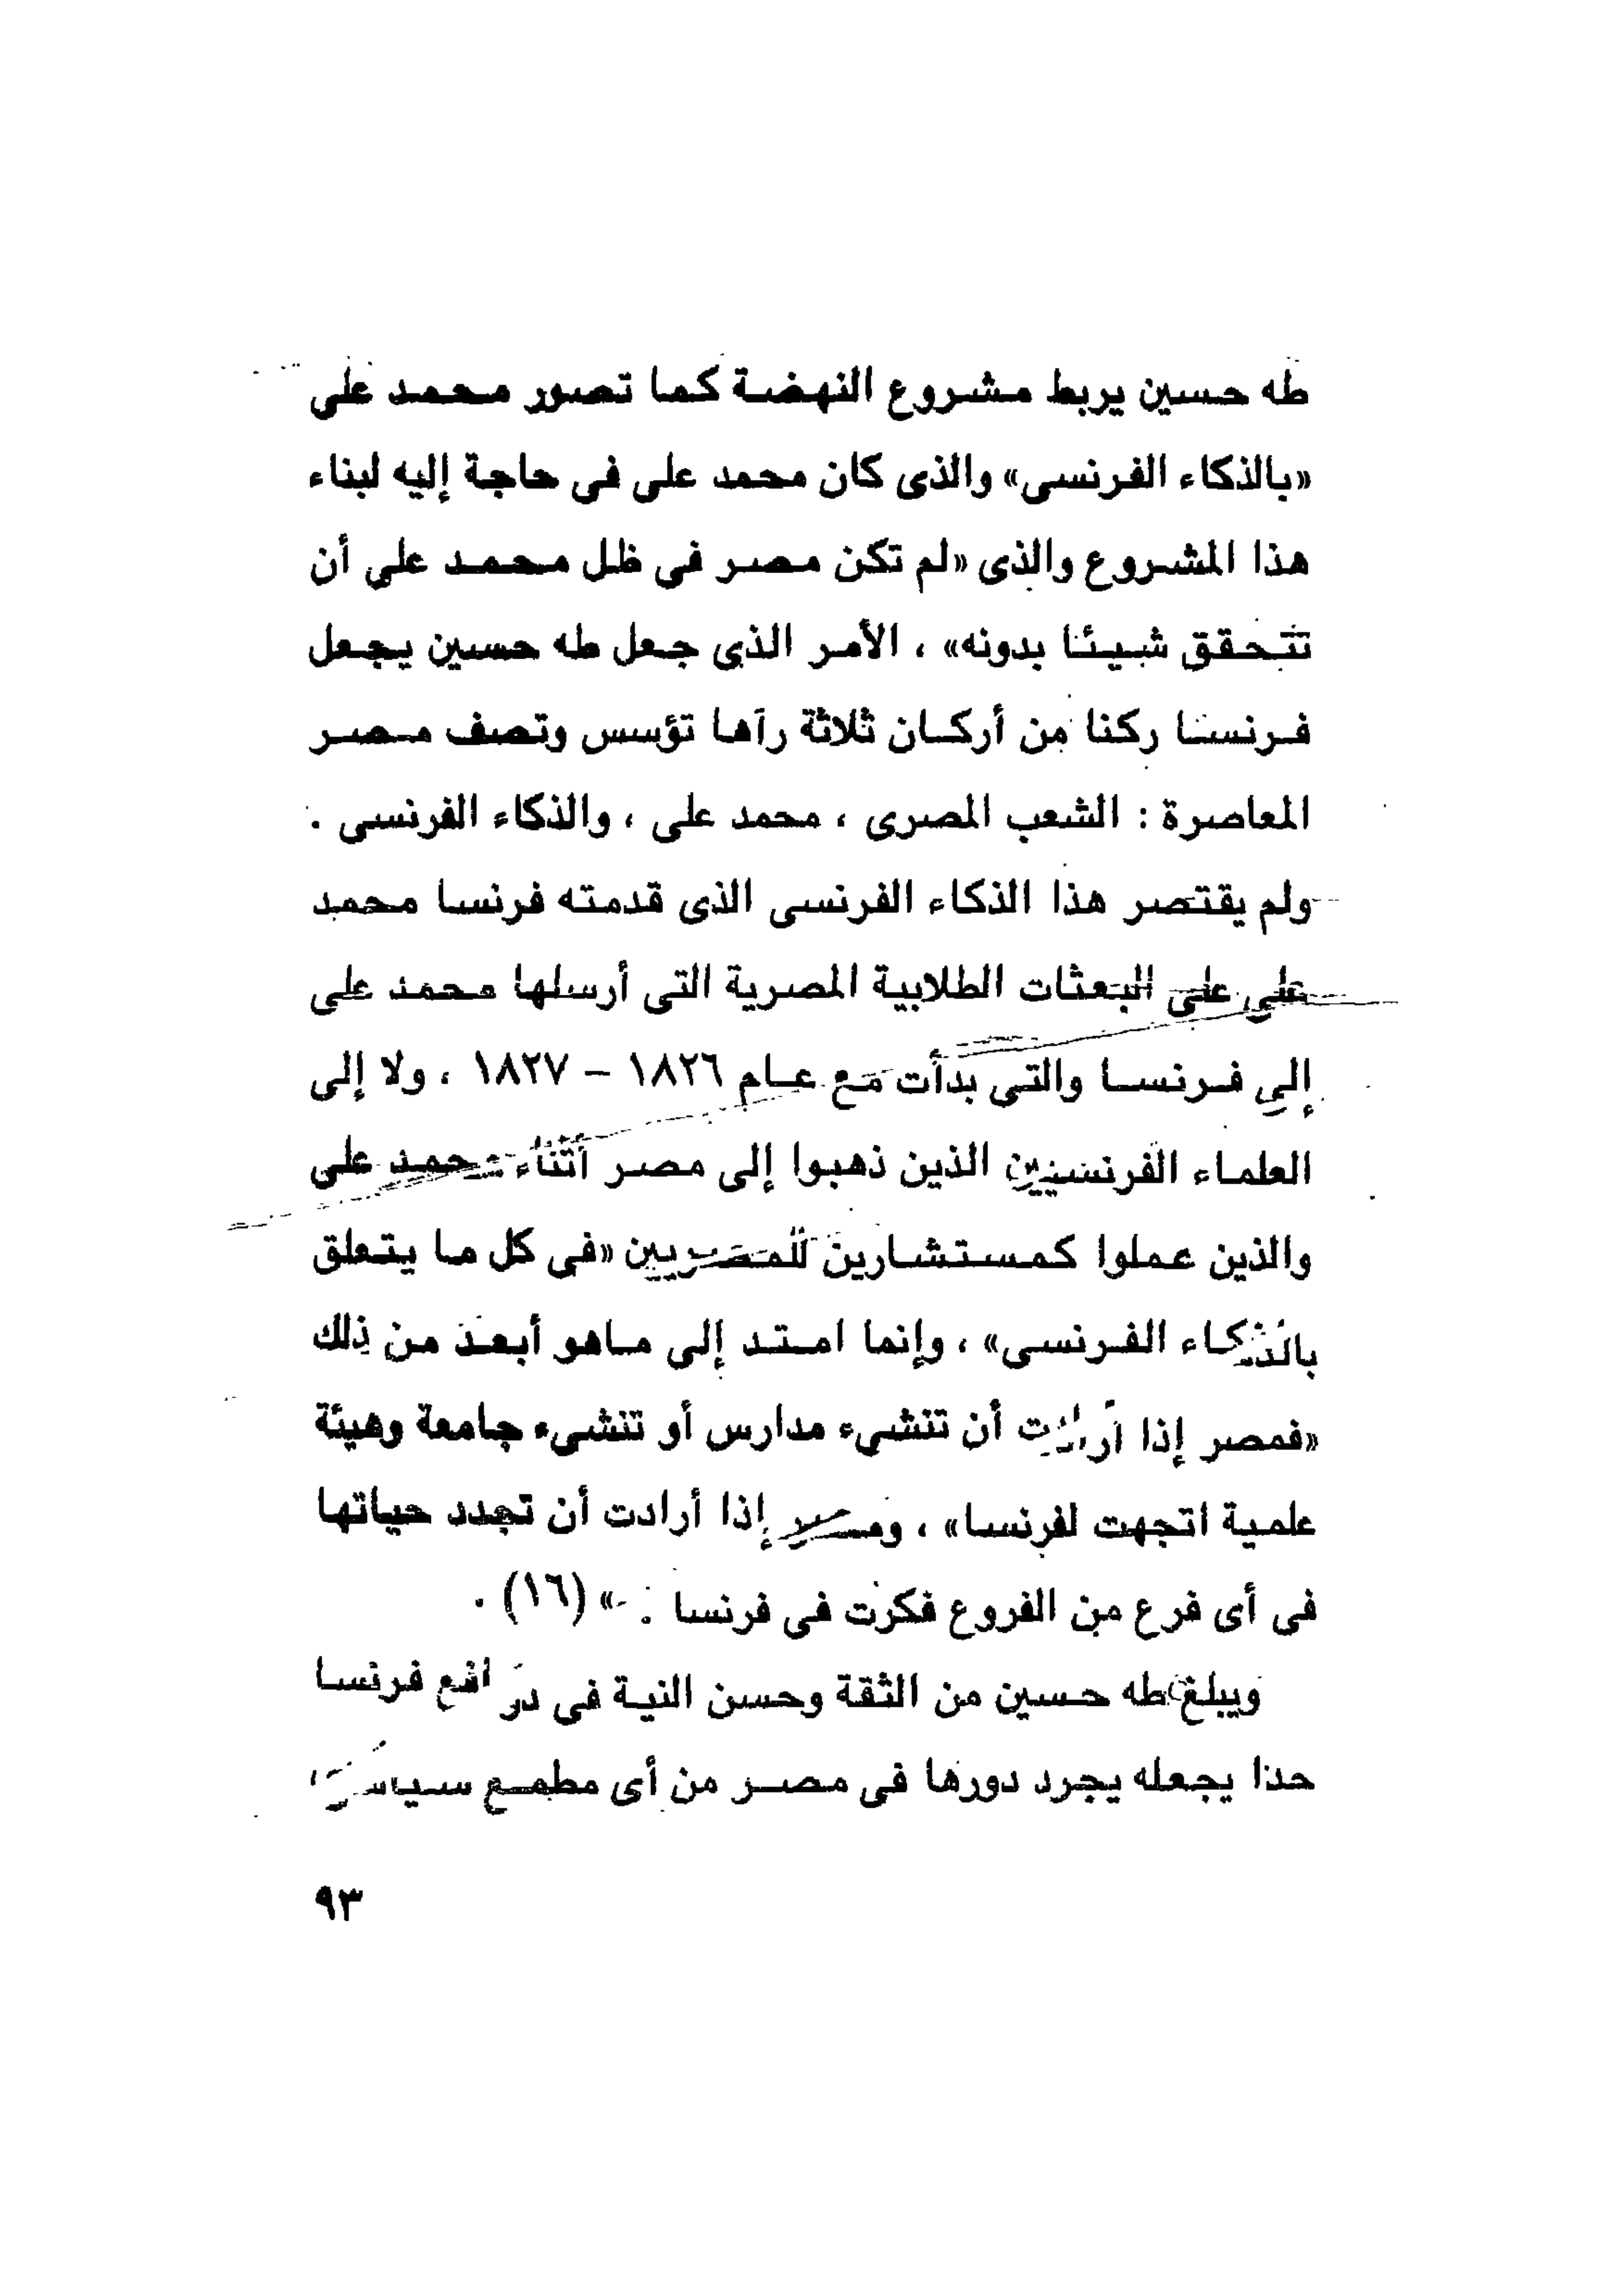 طه حسين يربط مشروع النهضة كما تصور محمد على
«بالذكاء الفرنسى» والذى كان محمد على فى حاجة إليه لبناء
هذا المشروع والذى «لم تكن مصر فى ظل محمد على أن
تتحقق شيئا بدونه» ، الأمر الذى جعل طه حسين يجعل
فرنسا ركنا من أركان ثلاثة رآها تؤسس وتصف مصر
المعاصرة : الشعب المصرى ، محمد على ، والذكاء الفرنسى .
ولم يقتصر هذا الذكاء الفرنسى الذى قدمته فرنسا محمد
على على البعثات الطلابية المصرية التى أرسلها محمد على
إلى فرنسا والتى بدأت مع عام ١٨٢٦ – ١٨٢٧ ، ولا إلى
العلماء الفرنسيين الذين ذهبوا إلى مصر أثناء محمد على
والذين عملوا كمستشارين للمصريين «فى كل ما يتعلق
بالذكاء الفرنسى» ، وإنما امتد إلى ماهو أبعد من ذلك
«فمصر إذا أرادت أن تنشىء مدارس أو تنشىء جامعة وهيئة
علمية اتجهت لفرنسا» ، ومصر إذا أرادت أن تجدد حياتها
فى أى فرع من الفروع فكرت فى فرنسا .» (١٦) .
ويبلغ طه حسين من الثقة وحسن النية فى دوافع فرنسا
حدا يجعله يجرد دورها فى مصر من أى مطمع سياسى
٩٣